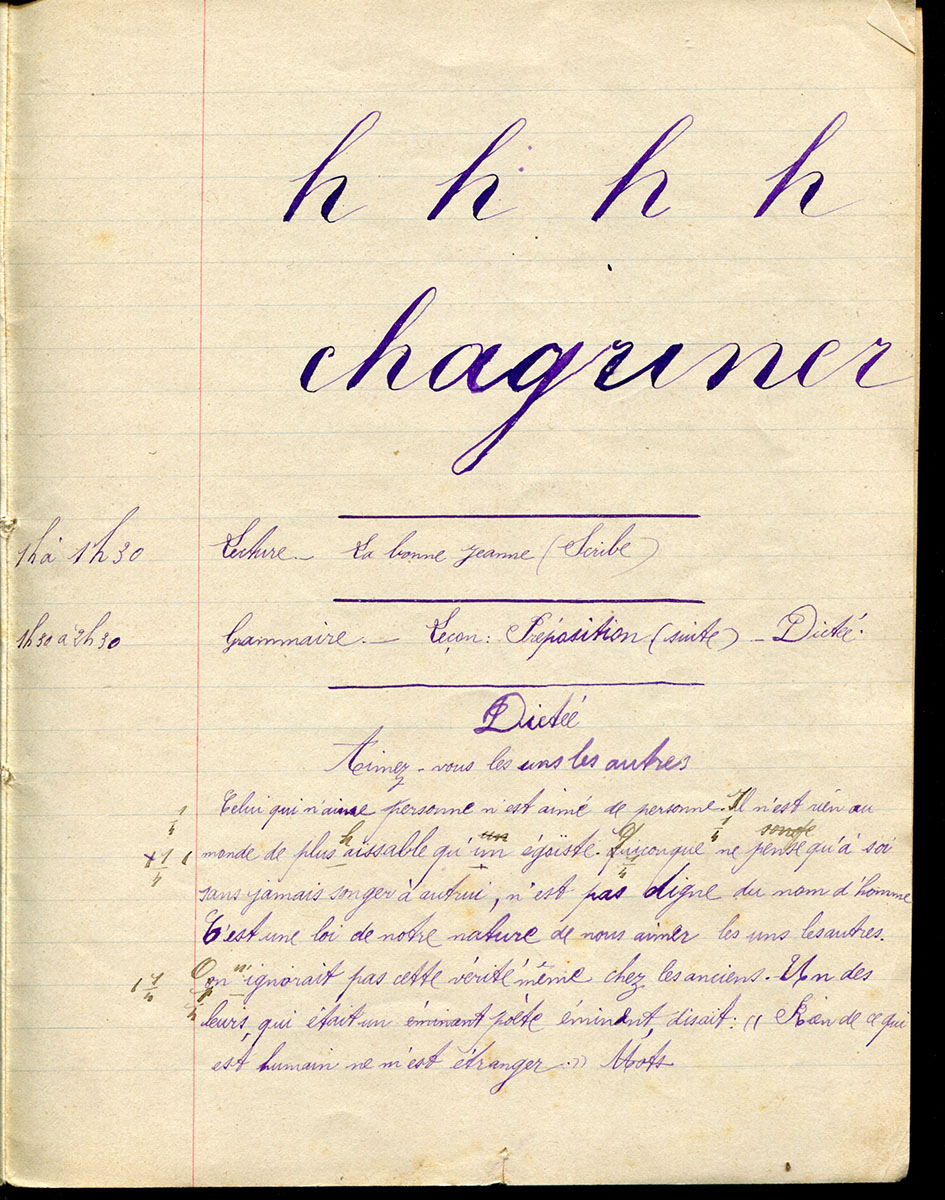 h h h h
chagriner
1h à 1h30 Lecture. — La bonne Jeanne (Scribe)
1h30 à 2h30 Grammaire. — Leçon: Préposition (suite) — Dictée.
Dictée
Aimez-vous les uns les autres
1/4 Celui qui n'aime personne n'est aimé de personne. Il n'est rien au
1/4 songe
monde de plus haïssable qu'un égoïste. Quiconque ne pense qu'à soi
sans jamais songer à autrui, n'est pas digne du nom d'homme
C'est une loi de notre nature de nous aimer les uns les autres.
On n'ignorait pas cette vérité même chez les anciens. Un des
leurs, qui était un éminant poète éminent, disait: « Rien de ce qui
est humain ne m'est étranger. » Mots